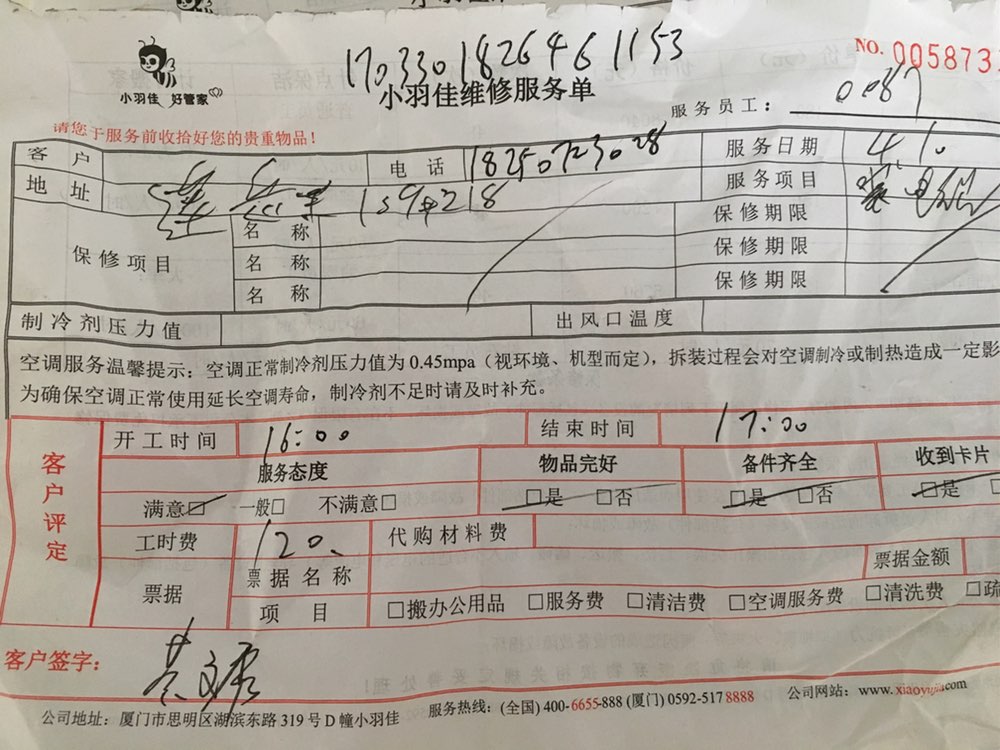 170330182646 1153
NO. 005873
小羽佳 好管家
小羽佳维修服务单
服务员工： 0087
请您于服务前收拾好您的贵重物品！
客户 电话 18250723028 服务日期 4 1.
地址 159#218 服务项目 装
保修项目 名称 保修期限
名称 保修期限
名称 保修期限
制冷剂压力值 出风口温度
空调服务温馨提示：空调正常制冷剂压力值为0.45mpa（视环境、机型而定），拆装过程会对空调制冷或制热造成一定影
为确保空调正常使用延长空调寿命，制冷剂不足时请及时补充。
客户评定
开工时间 16:00 结束时间 17:00
服务态度 物品完好 备件齐全 收到卡片
满意□ 一般□ 不满意□ □是 □否 □是 □否 □是
工时费 120、 代购材料费
票据 票据名称 票据金额
项目 □搬办公用品 □服务费 □清洁费 □空调服务费 □清洗费 □疏
客户签字：
公司地址：厦门市思明区湖滨东路319号D幢小羽佳 服务热线：(全国) 400-6655-888 (厦门) 0592-517 8888 公司网站：www.xiaoyujia.com